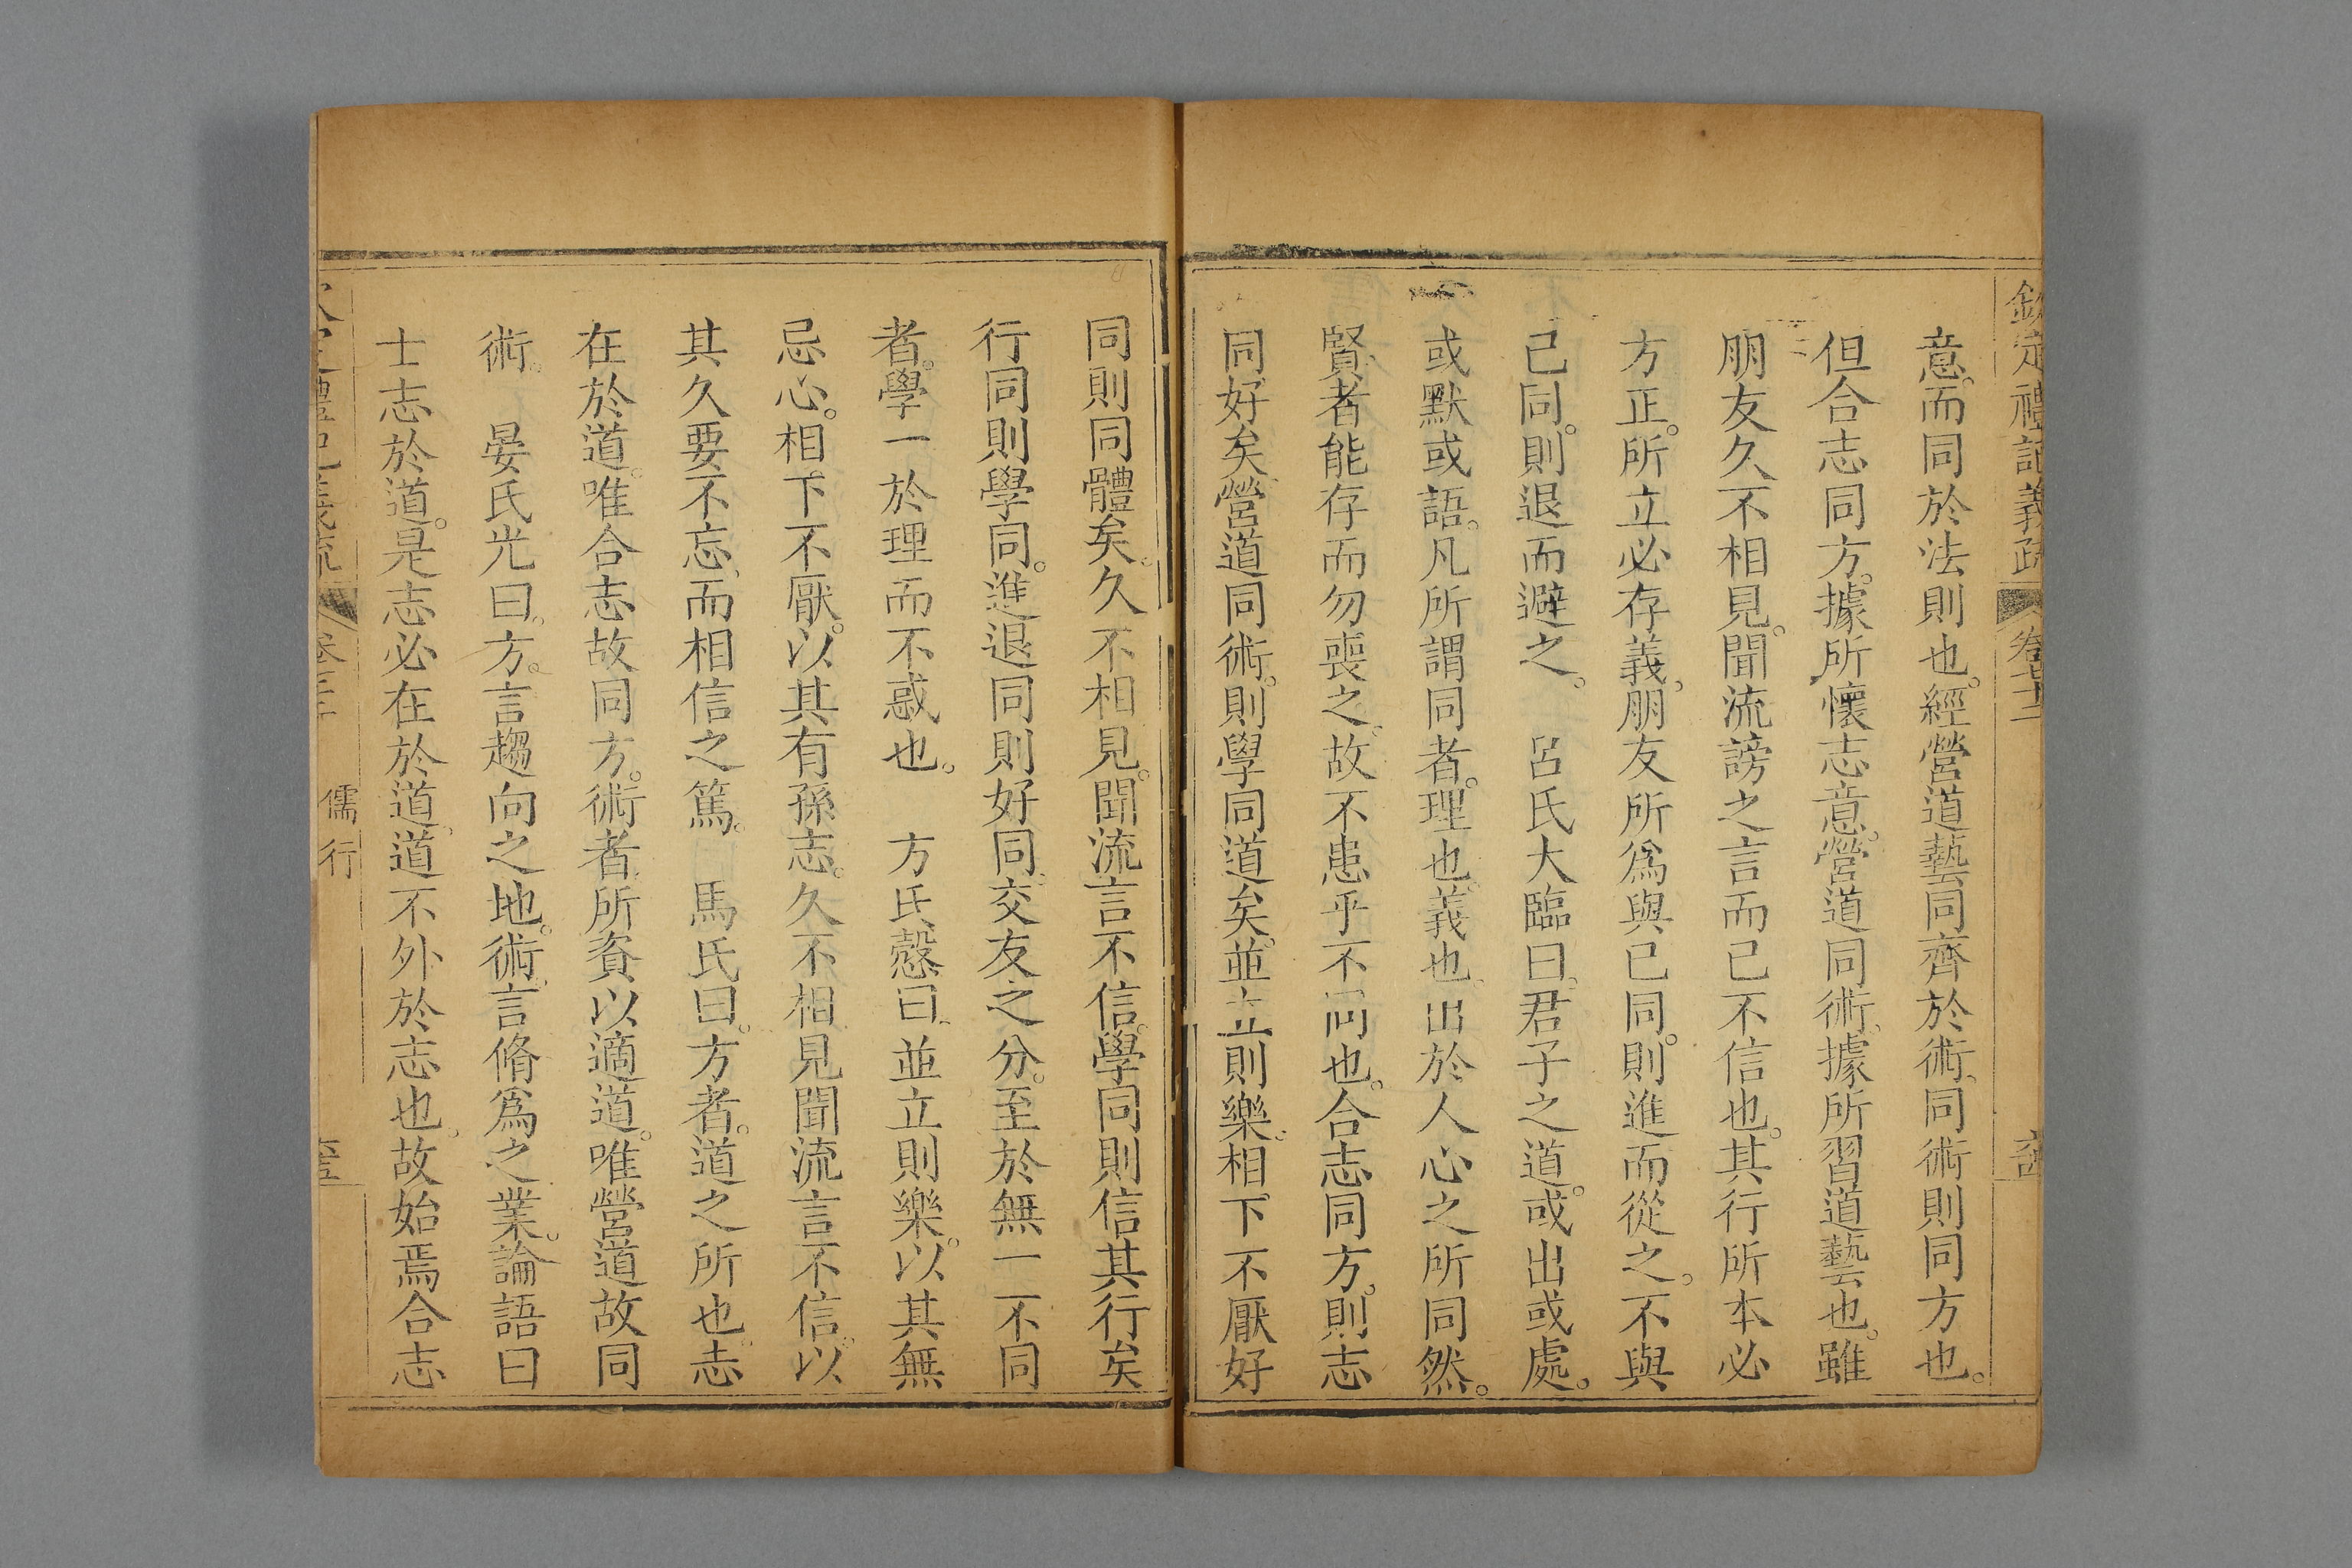 欽定禮記義疏 卷七十二
意。而同於法則也。經營道藝同齊於術、同術則同方也。
但合志同方。據所懷志意。營道同術、據所習道藝也。雖
朋友久不相見。聞流謗之言而已不信也。其行所本必
方正。所立必存義。朋友所爲與已同。則進而從之。不與
已同。則退而避之。 呂氏大臨曰。君子之道。或出或處。
或默或語。凡所謂同者。理也。義也、出於人心之所同然。
賢者能存而勿喪之、故不患乎不同也。合志同方。則志
同好矣、營道同術。則學同道矣。並立則樂。相下不厭好
同則同體矣。久不相見。聞流言不信。學同則信其行矣
行同則學同。進退同則好同、交友之分。至於無一不同
者。學一於理而不惑也。 方氏慤曰、並立則樂。以其無
忌心。相下不厭。以其有孫志。久不相見聞流言不信。以
其久要不忘、而相信之篤。 馬氏曰。方者。道之所也、志
在於道。唯合志故同方。術者、所資以適道。唯營道故同
術。 晏氏光曰。方。言趨向之地。術、言脩爲之業。論語曰
士志於道。是志必在於道。道不外於志也。故始焉合志
儒行